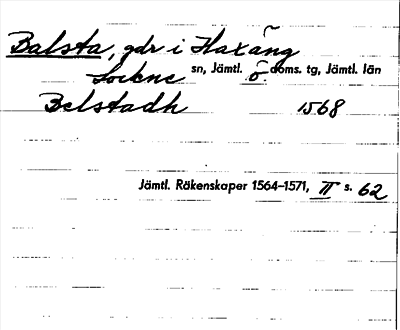 Balsta, gdr i Haxäng
Lockne sn, Jämtl. ö doms. tg, Jämtl. län
Belstadh 1568
Jämtl. Räkenskaper 1564-1571, II s. 62